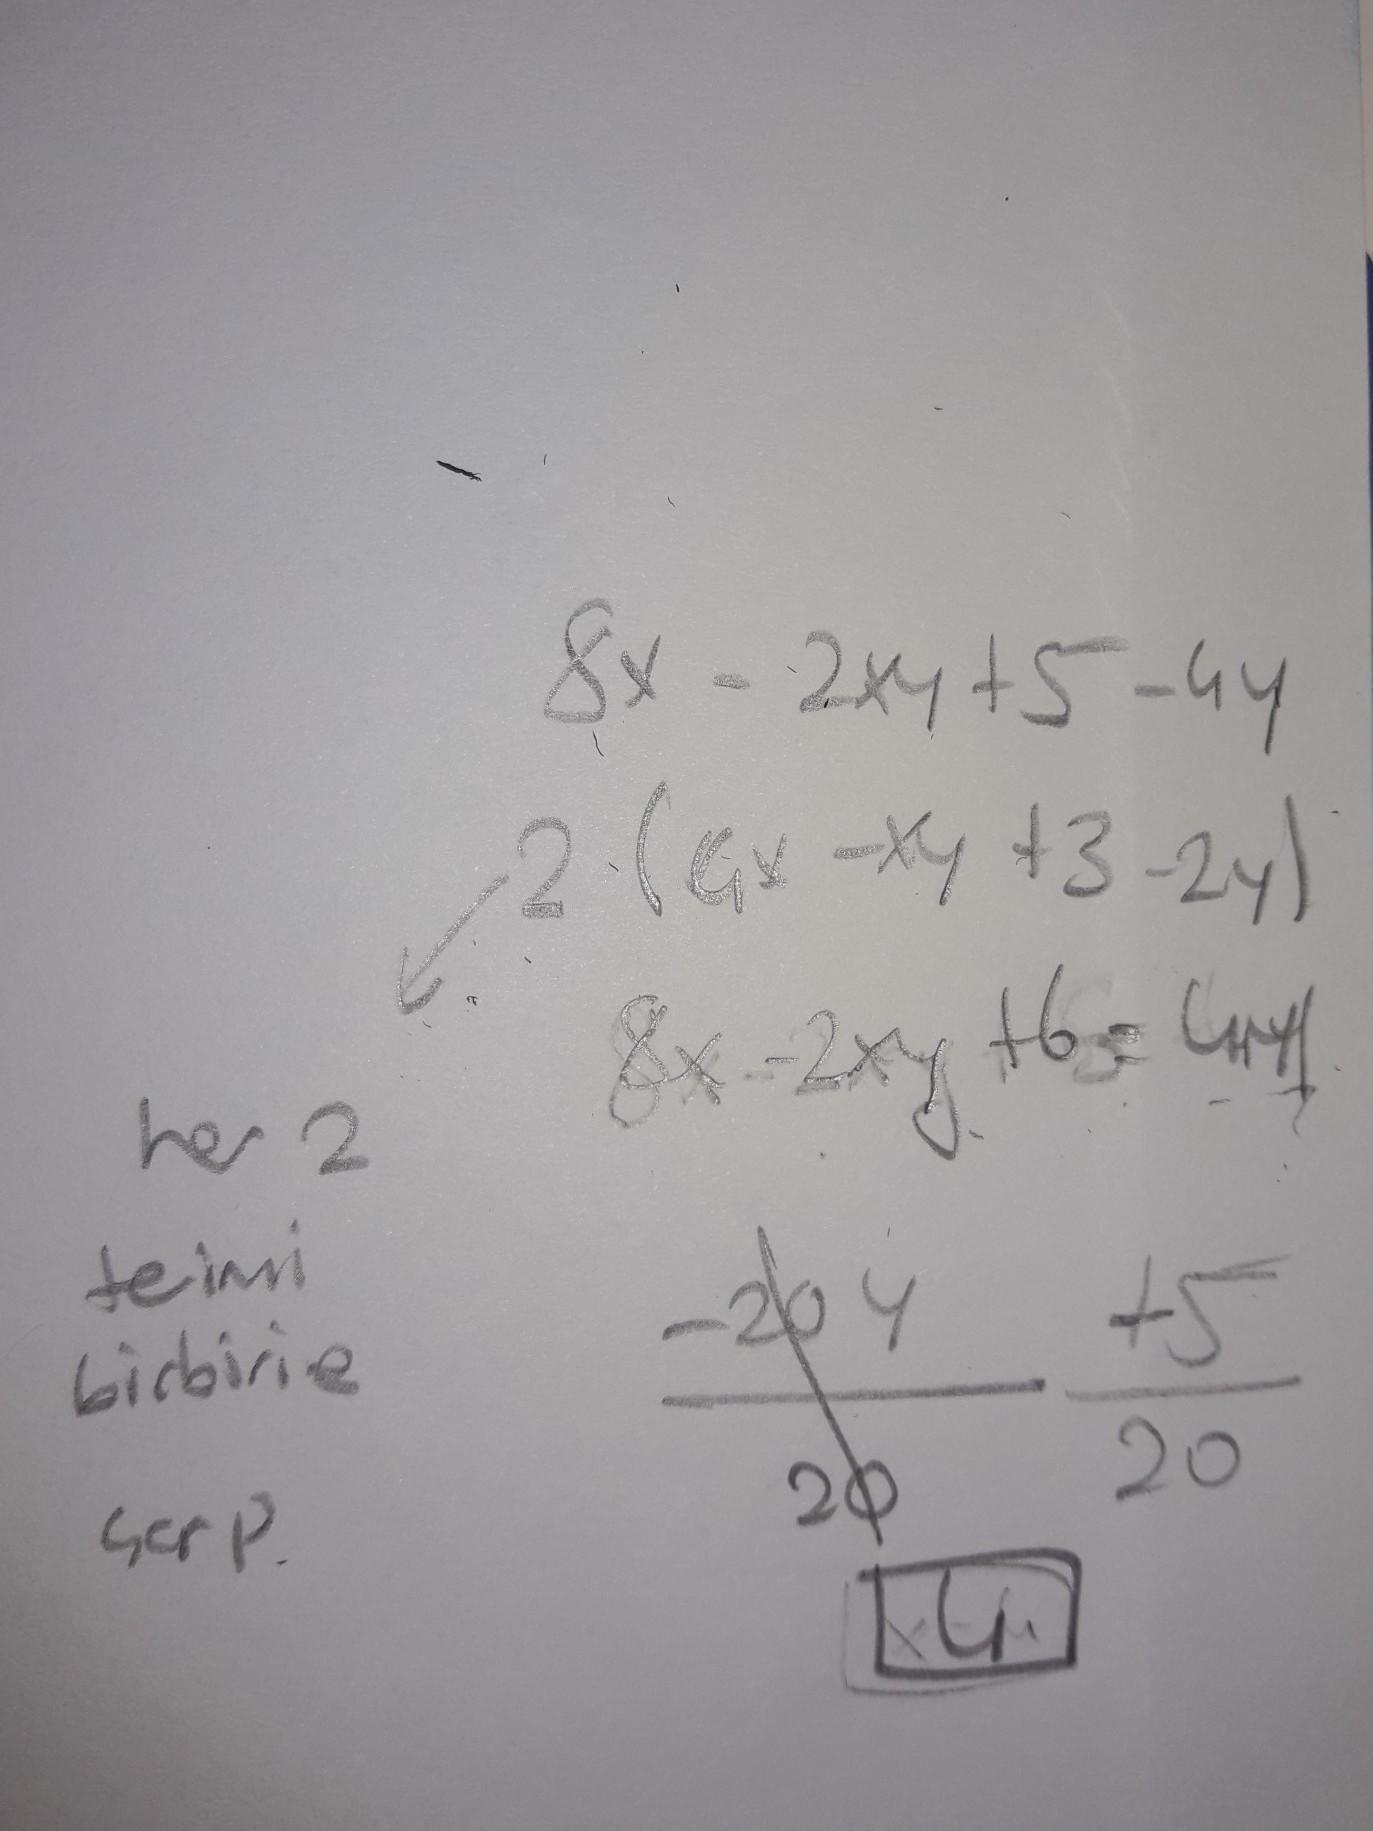 8x - 2xy + 5 - 4y
2 . (4x - xy + 3 - 2y)
8x - 2xy + 6 =
her 2
birbirie
Çarp.
-20 y +5
20 20
4